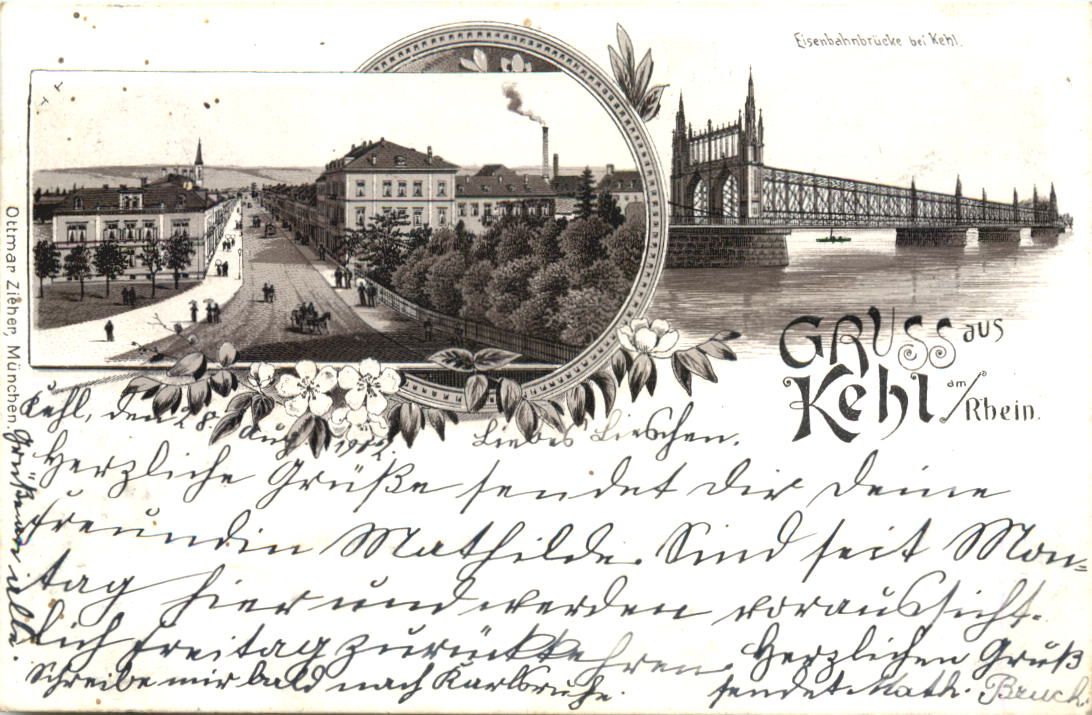 Eisenbahnbrücke bei Kehl.
GRUSS aus
Kehl am/Rhein.
Ottmar Zieher, München.
Kehl, den 28. Aug. 1902.
Liebes Lieschen.
Herzliche Grüße sendet dir deine
Freundin Mathilde. Sind seit Mon-
tag hier und werden voraussicht-
lich Freitag zurückkehren. Herzlichen Gruß
Schreibe mir bald nach Karlsruhe. sendet Math. Bruch
Grüße an alle.